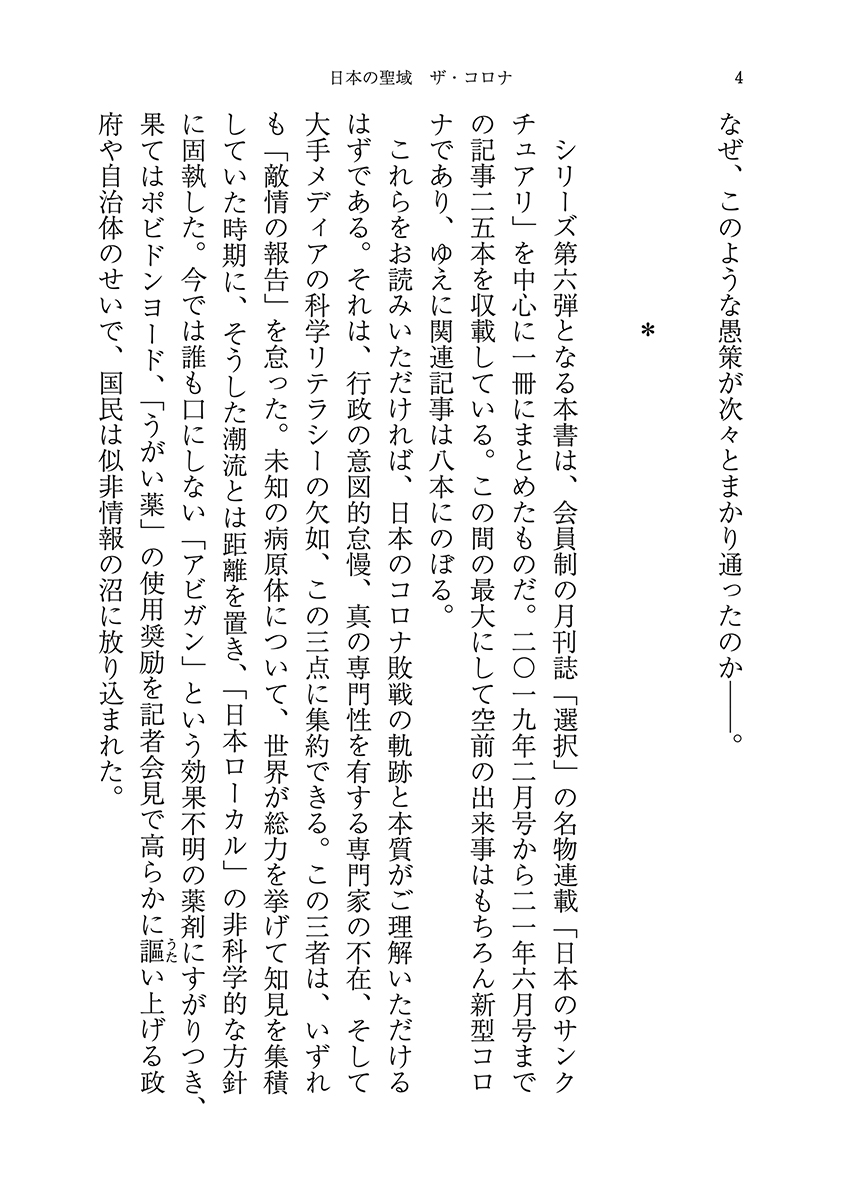 日本の聖域　ザ・コロナ
4
なぜ、このような愚策が次々とまかり通ったのか――。
＊
シリーズ第六弾となる本書は、会員制の月刊誌「選択」の名物連載「日本のサンク
チュアリ」を中心に一冊にまとめたものだ。二〇一九年二月号から二一年六月号まで
の記事二五本を収載している。この間の最大にして空前の出来事はもちろん新型コロ
ナであり、ゆえに関連記事は八本にのぼる。
これらをお読みいただければ、日本のコロナ敗戦の軌跡と本質がご理解いただける
はずである。それは、行政の意図的怠慢、真の専門性を有する専門家の不在、そして
大手メディアの科学リテラシーの欠如、この三点に集約できる。この三者は、いずれ
も「敵情の報告」を怠った。未知の病原体について、世界が総力を挙げて知見を集積
していた時期に、そうした潮流とは距離を置き、「日本ローカル」の非科学的な方針
に固執した。今では誰も口にしない「アビガン」という効果不明の薬剤にすがりつき、
果てはポビドンヨード、「うがい薬」の使用奨励を記者会見で高らかに謳い上げる政
うた
府や自治体のせいで、国民は似非情報の沼に放り込まれた。